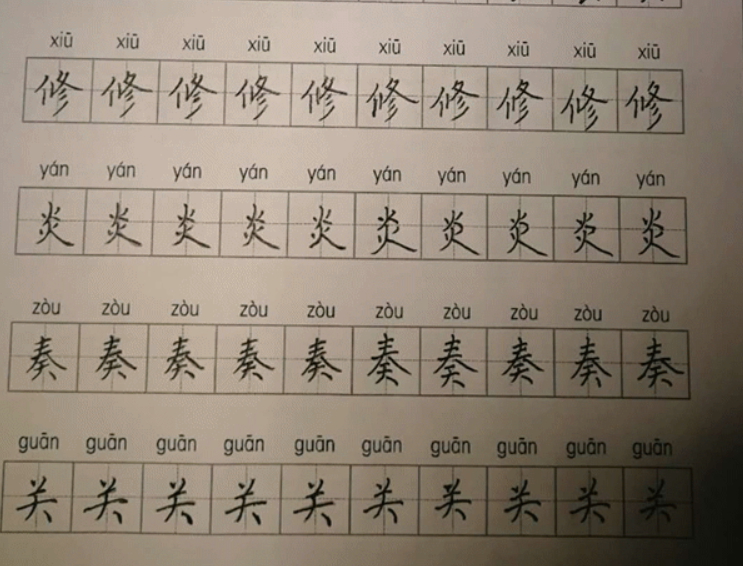 xiū xiū xiū xiū xiū xiū xiū xiū xiū xiū
修 修 修 修 修 修 修 修 修 修
yán yán yán yán yán yán yán yán yán yán
炎 炎 炎 炎 炎 炎 炎 炎 炎 炎
zòu zòu zòu zòu zòu zòu zòu zòu zòu zòu
奏 奏 奏 奏 奏 奏 奏 奏 奏 奏
guān guān guān guān guān guān guān guān guān guān
关 关 关 关 关 关 关 关 关 关